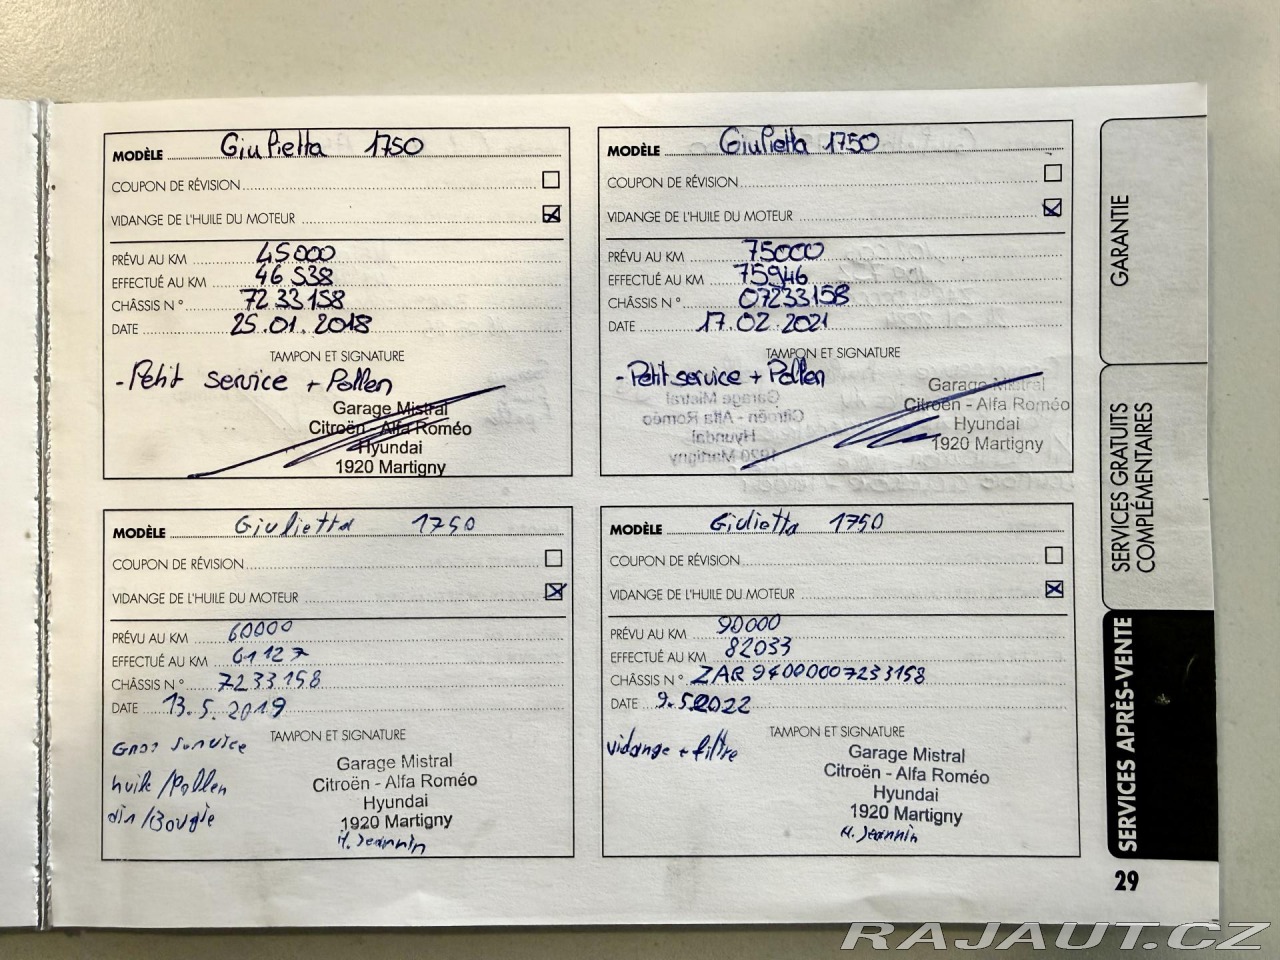 MODÈLE Giulietta 1750
COUPON DE RÉVISION
VIDANGE DE L'HUILE DU MOTEUR
PRÉVU AU KM 45000
EFFECTUÉ AU KM 46538
CHÂSSIS N° 7233158
DATE 25.01.2018
TAMPON ET SIGNATURE
- Petit service + Pollen
Garage Mistral
Citroën - Alfa Roméo
Hyundai
1920 Martigny
MODÈLE Giulietta 1750
COUPON DE RÉVISION
VIDANGE DE L'HUILE DU MOTEUR
PRÉVU AU KM 75000
EFFECTUÉ AU KM 75946
CHÂSSIS N° 07233158
DATE 17.02.2021
TAMPON ET SIGNATURE
- Petit service + Pollen
Garage Mistral
Citroën - Alfa Roméo
Hyundai
1920 Martigny
MODÈLE Giulietta 1750
COUPON DE RÉVISION
VIDANGE DE L'HUILE DU MOTEUR
PRÉVU AU KM 60000
EFFECTUÉ AU KM 61127
CHÂSSIS N° 7233158
DATE 13.5.2019
TAMPON ET SIGNATURE
Gros service
huile/Pollen
air/Bougie
Garage Mistral
Citroën - Alfa Roméo
Hyundai
1920 Martigny
H. Jeannin
MODÈLE Giulietta 1750
COUPON DE RÉVISION
VIDANGE DE L'HUILE DU MOTEUR
PRÉVU AU KM 90000
EFFECTUÉ AU KM 82033
CHÂSSIS N° ZAR94000007233158
DATE 9.5.2022
TAMPON ET SIGNATURE
Vidange + filtre
Garage Mistral
Citroën - Alfa Roméo
Hyundai
1920 Martigny
H. Jeannin
GARANTIE
SERVICES GRATUITS
COMPLÉMENTAIRES
SERVICES APRÈS-VENTE
29
RAJAUT.CZ